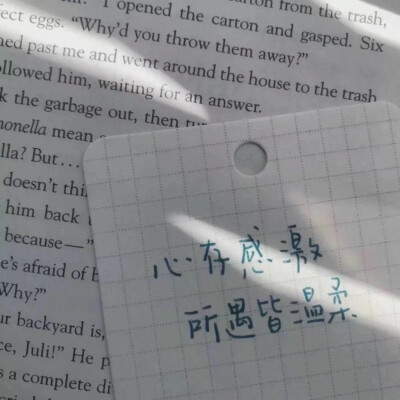 carton from the trash,
I opened the carton and gasped. Six
fect eggs. "Why'd you throw them away?"
ned past me and went around the house to the trash
ollowed him, waiting for an answer.
k the garbage out, then
monella mean
lla? But...
doesn't thi
him back
because—"
e's afraid of
Why?"
ur backyard is,
ce, Juli!" He p
s a complete di
心存感激
所遇皆温柔